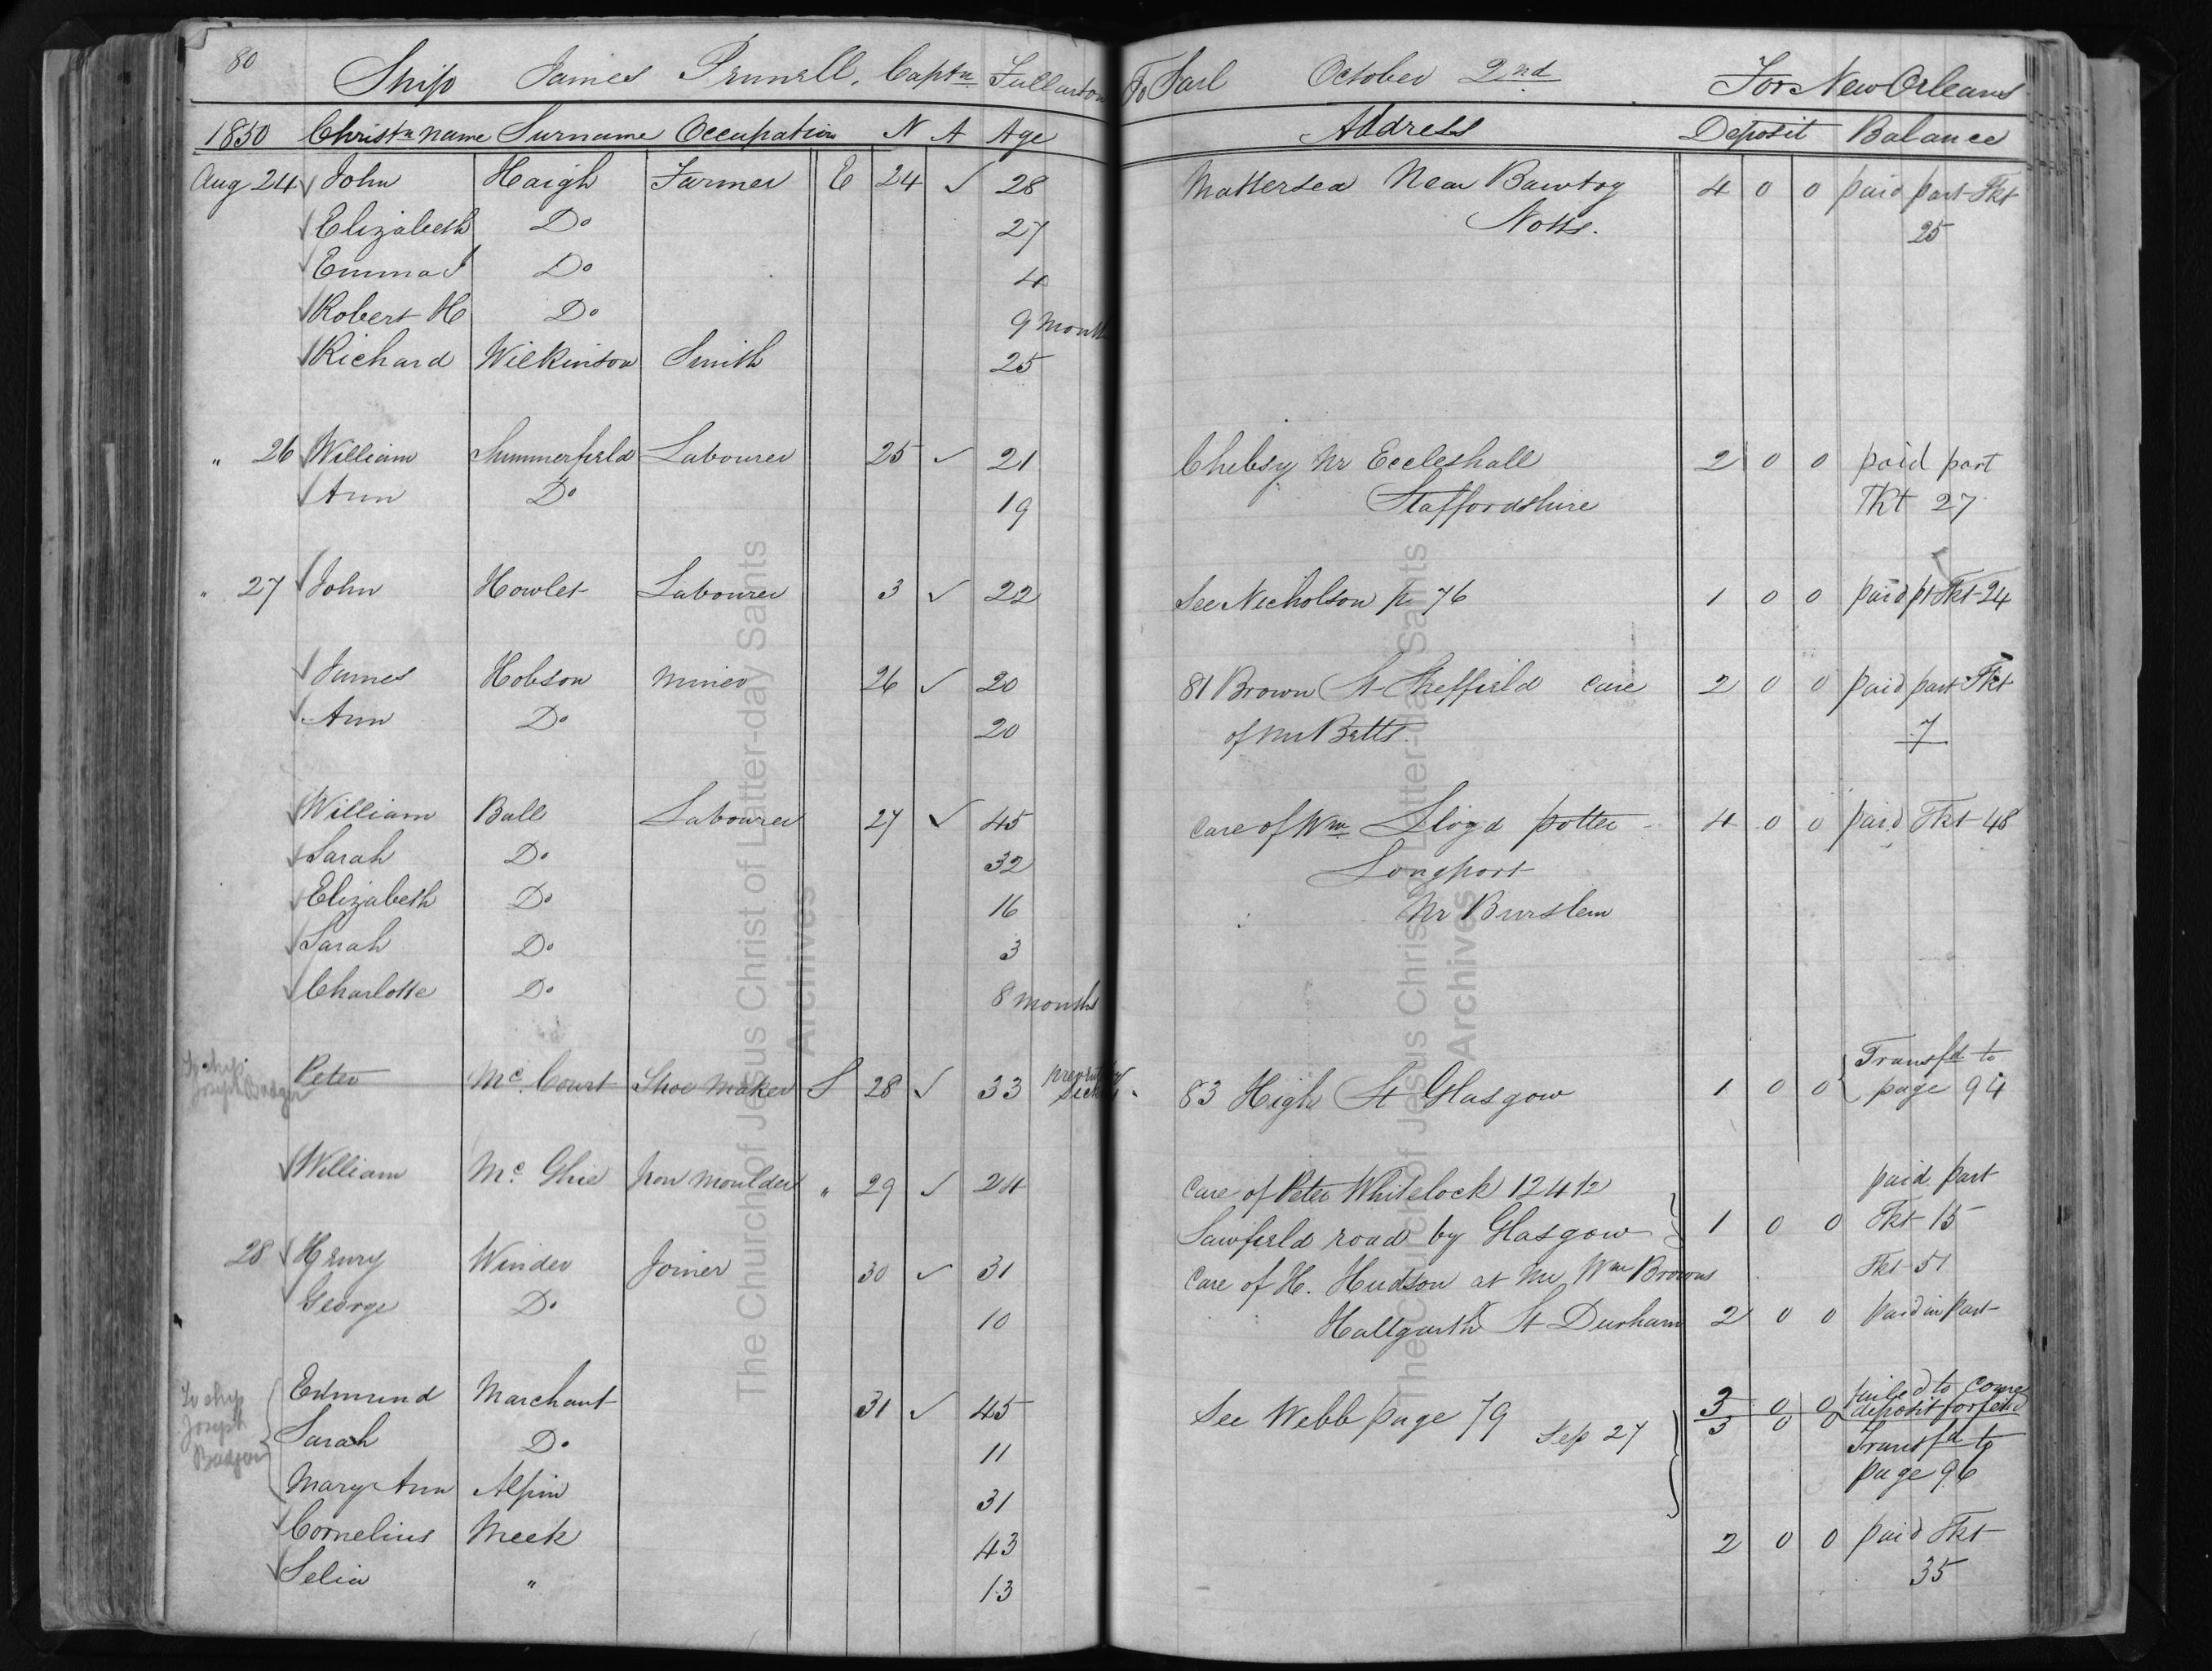 80
Ship James Pennell, Captn Fullarton To Sail October 2nd For New Orleans
1850 Christn name Surname Occupation N A Age Address Deposit Balance
Aug 24 John Haigh Farmer E 24 ✓ 28 Mattersea Near Bawtry 4 0 0 paid part Tkt
Elizabeth Do 27 Notts. 25
Emma J Do 4
Robert H Do 9 Month
Richard Wilkinson Smith 25
" 26 William Summerfield Labourer 25 ✓ 21 Chebsy Nr Eccleshall 2 0 0 paid part
Ann Do 19 Staffordshire Tkt 27
" 27 John Howlet Labourer 3 ✓ 22 See Nicholson p 76 1 0 0 paid pt Tkt 24
James Hobson Miner 26 ✓ 20 81 Brown St Sheffield care 2 0 0 paid part Tkt
Ann Do 20 of Mr Betts. 7
William Ball Labourer 27 ✓ 45 Care of Wm Lloyd potter 4 0 0 paid Tkt 48
Sarah Do 32 Longport
Elizabeth Do 16 Nr Burslem
Sarah Do 3
Charlotte Do 8 months
To ship Joseph Badger Peter Mc Court Shoe Maker S 28 ✓ 33 83 High St Glasgow 1 0 0 Transfd to
page 94
William Mc Ghie Iron moulder " 29 ✓ 24 Care of Peter Whitelock 124 1/2 paid part
Sawfield road by Glasgow 1 0 0 Tkt 15
28 Henry Winder Joiner 30 ✓ 31 Care of H. Hudson at Mr Wm Browns Tkt 51
George Do 10 Hallgarth St Durham 2 0 0 Paid in Part
To ship Joseph Badger Edmund Marchant 31 ✓ 45 See Webb page 79 Sep 27 3 0 0 failed to come
3 0 0 deposit forfeitd
Sarah Do 11 Transfd to
Mary Ann Alpin 31 page 96
Cornelius Meek 43 2 0 0 paid Tkt
Selia " 13 35
The Church of Jesus Christ of Latter-day Saints
Archives
The Church of Jesus Christ of Latter-day Saints
Archives